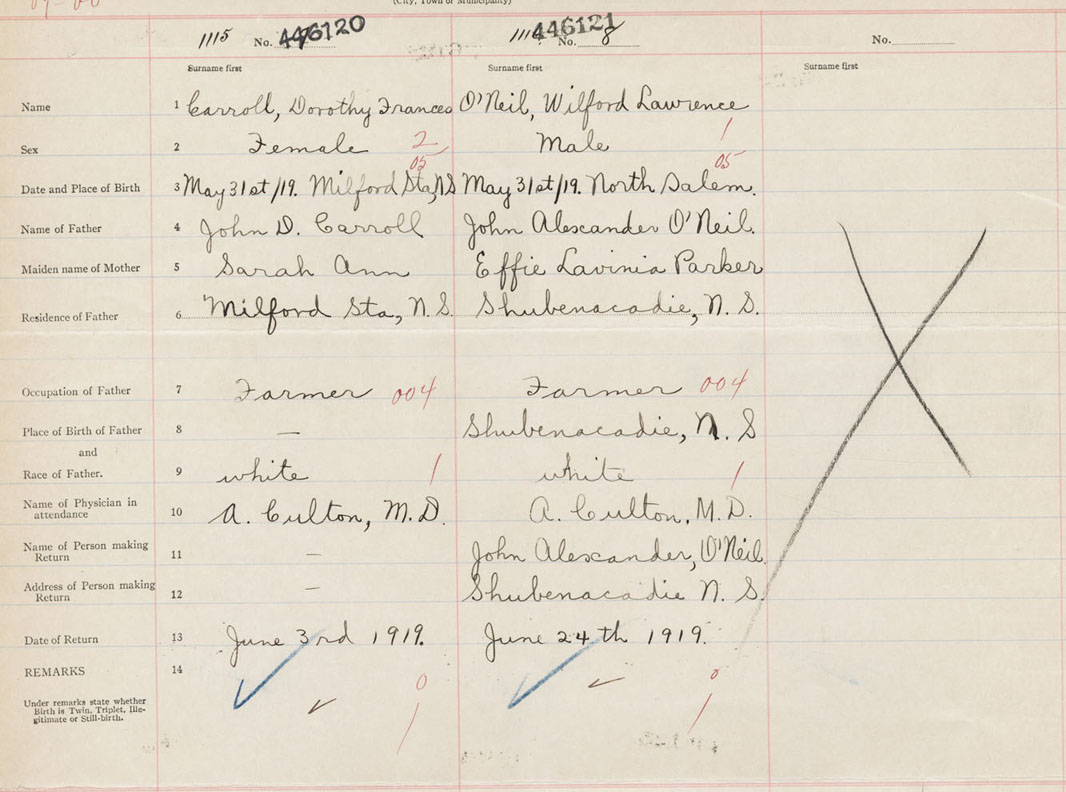 (City, Town or Municipality)
1115 No. 446120 446121 No. 8 No.
Surname first Surname first Surname first
Name 1 Carroll, Dorothy Frances O'Neil, Wilford Lawrence
Sex 2 Female 2 Male 1
Date and Place of Birth 3 May 31st/19. Milford Sta, N.S 05 May 31st/19. North Salem. 05
Name of Father 4 John D. Carroll John Alexander O'Neil.
Maiden name of Mother 5 Sarah Ann Effie Lavinia Parker
Residence of Father 6 Milford Sta, N.S. Shubenacadie, N.S.
Occupation of Father 7 Farmer 004 Farmer 004
Place of Birth of Father 8 — Shubenacadie, N.S
and
Race of Father. 9 white 1 white 1
Name of Physician in
attendance 10 A. Culton, M.D. A. Culton, M.D.
Name of Person making
Return 11 — John Alexander, O'Neil
Address of Person making
Return 12 — Shubenacadie N.S.
Date of Return 13 June 3rd 1919. June 24th 1919.
REMARKS 14
0 0
Under remarks state whether
Birth is Twin, Triplet, Ille-
gitimate or Still-birth.
1 1